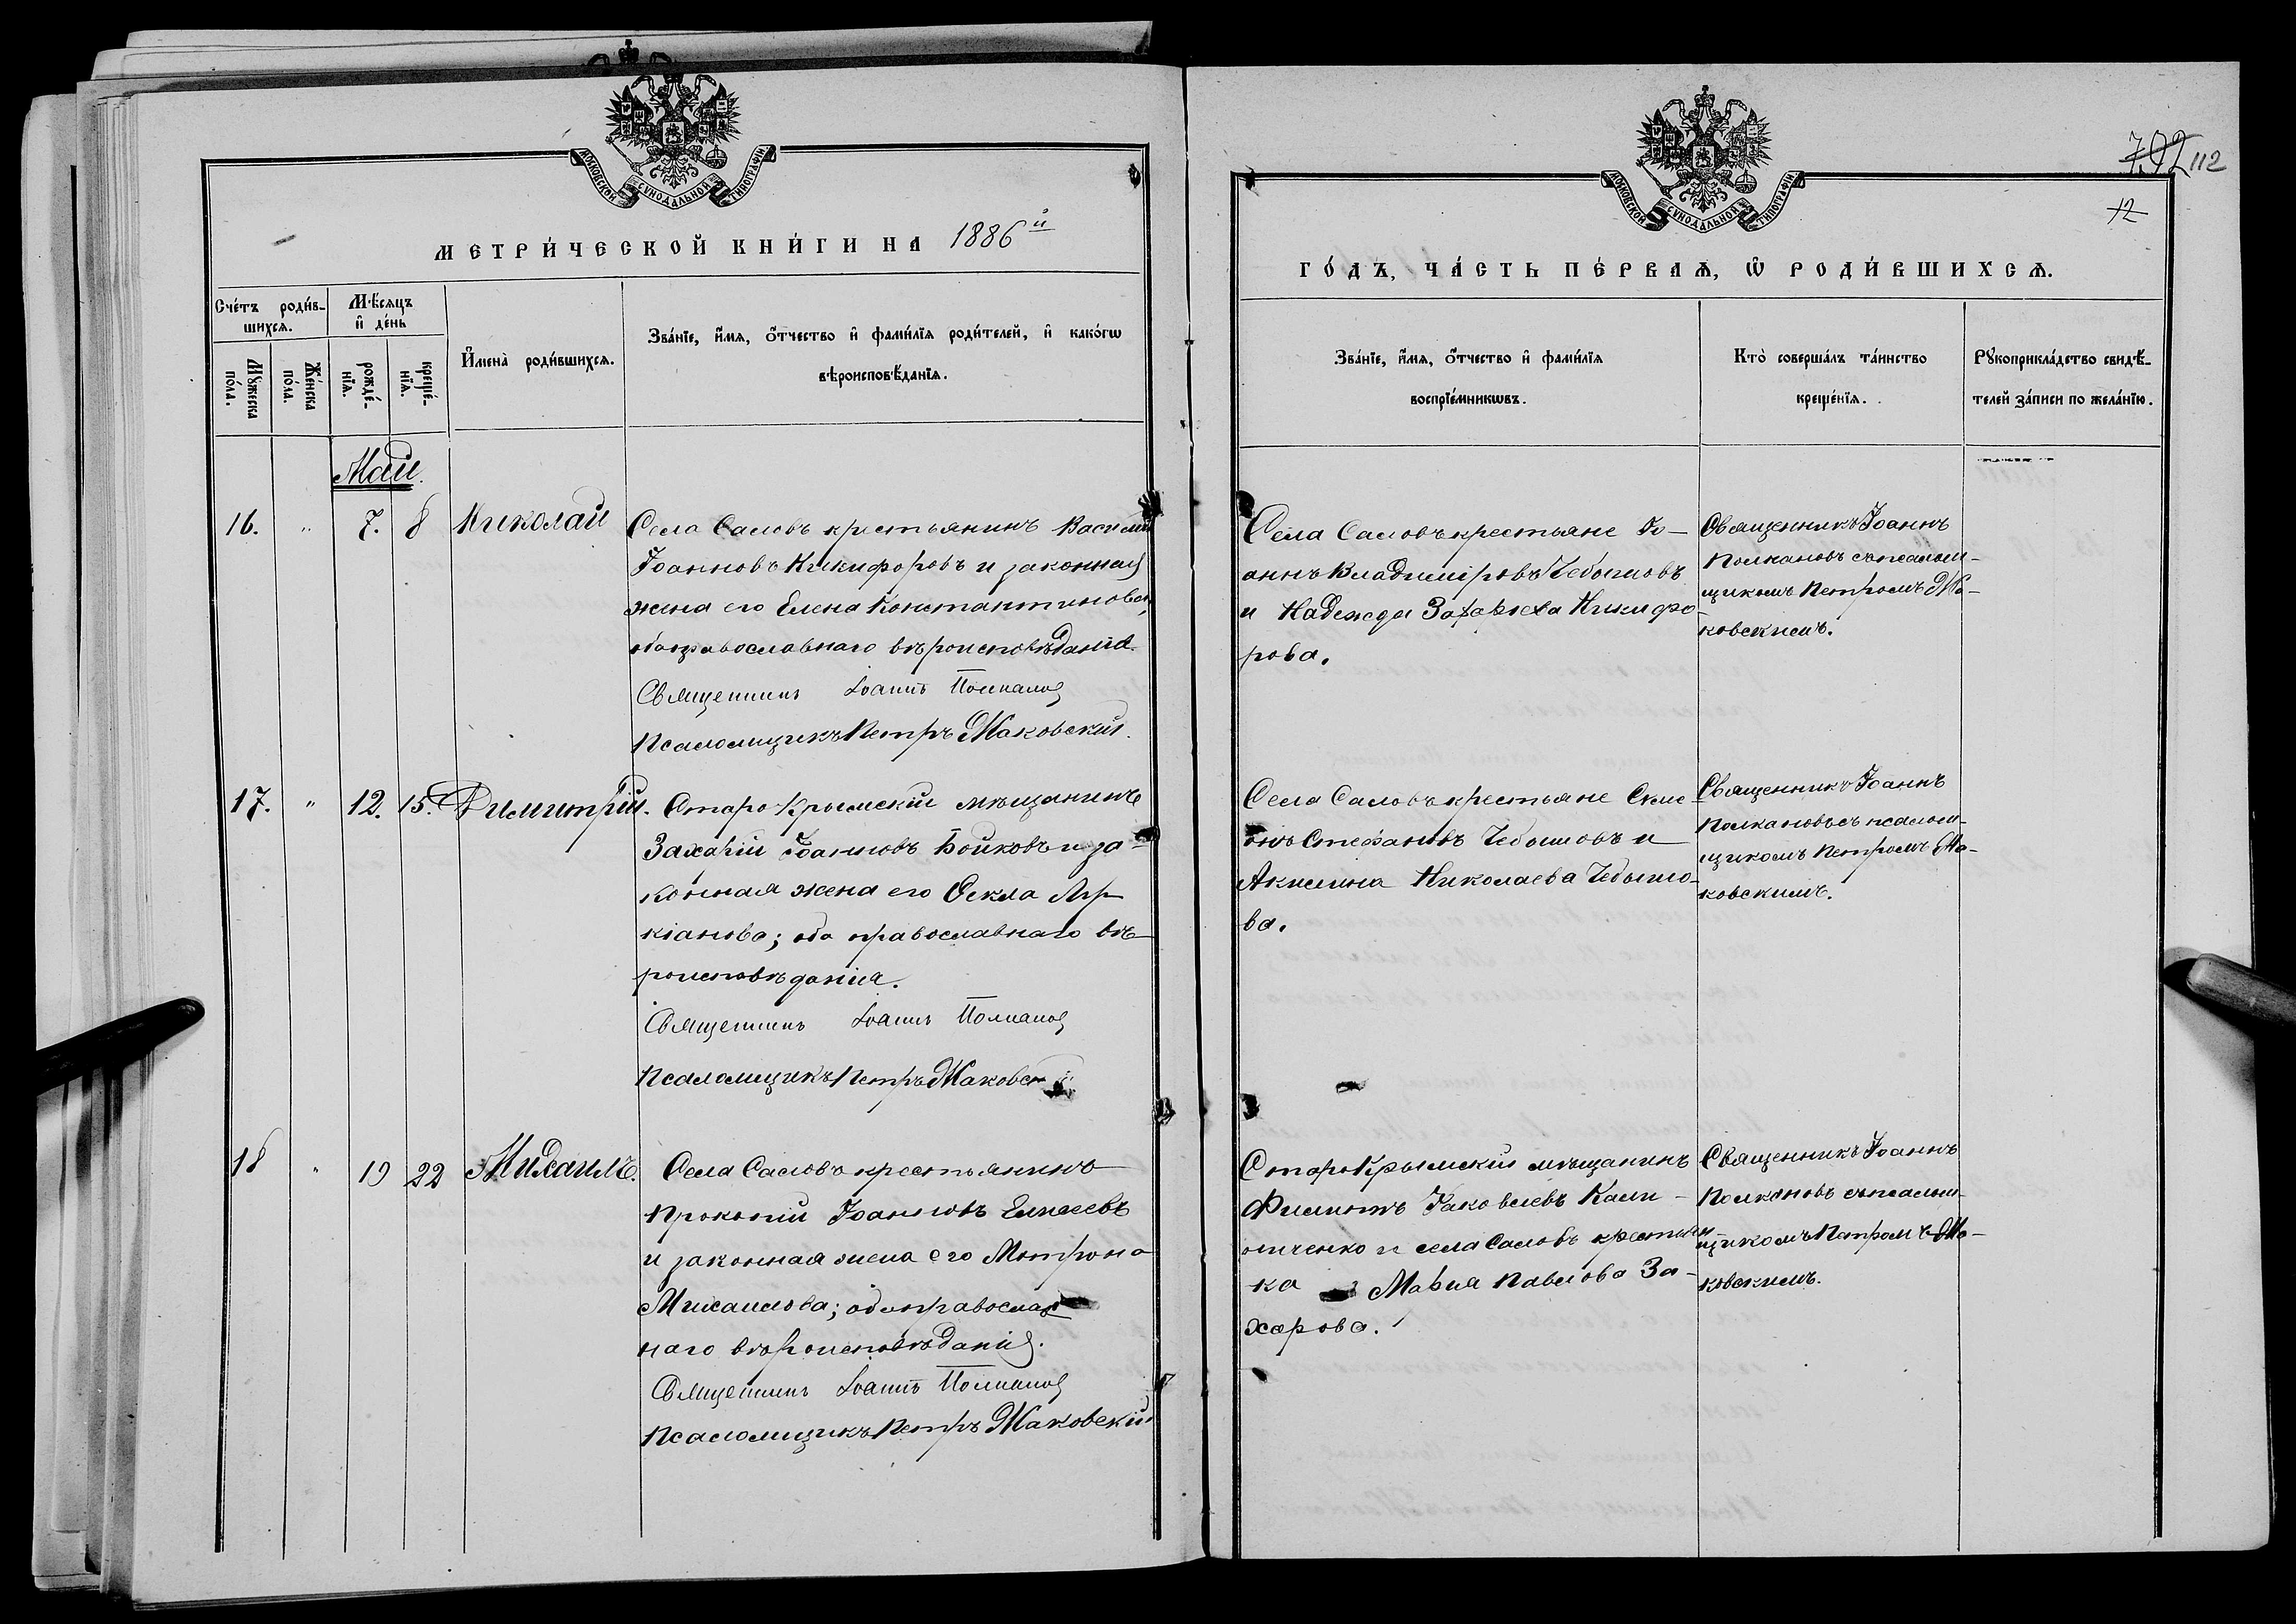 МОСКОВСКОЙ СѴНОДАЛЬНОЙ ТИПОГРАФІИ
МЕТРИ́ЧЕСКОЙ КНИ́ГИ НА 1886й
Сче́тъ роди́в-
шихсѧ.
Мѣ́сѧцъ
и҆ де́нь
Мꙋ́жеска
по́ла.
Же́нска
по́ла.
рожде́-
нїѧ.
креще́-
нїѧ.
И҆мена̀ роди́вшихсѧ.
Зва́нїе, и҆́мѧ, ѻ҆́тчество и҆ фами́лїѧ роди́телей, и҆ како́гѡ
вѣроисповѣ́данїѧ.
Май.
16. " 7. 8 Николай
Села Саловъ крестьянинъ Василій
Іоанновъ Никифоровъ и законная
жена его Елена Константинова,
оба православнаго вѣроисповѣданія.
Священникъ Іоаннъ Полкановъ
Псаломщикъ Петръ Маковскій.
17. " 12. 15. Димитрій.
Старо-Крымскій мѣщанинъ
Захарій Іоанновъ Бойковъ и за-
конная жена его Ѳекла Мр
кіанова; оба православнаго вѣ-
роисповѣданія.
Священникъ Іоаннъ Полкановъ
Псаломщикъ Петръ Маковскій
18 " 19 22 Михаилъ.
Села Саловъ крестьянинъ
Прокопій Іоанновъ Елисеевъ
и законная жена его Матрона
Михаилова; оба православ
наго вѣроисповѣданія.
Священникъ Іоаннъ Полкановъ
Псаломщикъ Петръ Маковскій
792 112
12
МОСКОВСКОЙ СѴНОДАЛЬНОЙ ТИПОГРАФІИ
ГО́ДЪ, ЧА́СТЬ ПЕ́РВАѦ, Ѡ҆ РОДИ́ВШИХСѦ.
Зва́нїе, и҆́мѧ, ѻ҆́тчество и҆ фами́лїѧ
воспрїе́мникѡвъ.
Кто̀ соверша́лъ та́инство
креще́нїѧ.
Рꙋкоприкла́дство свидѣ́-
телей за́писи по жела́нїю.
Села Саловъ крестьяне Іо-
аннъ Владиміровъ Чебышовъ
и Надежда Захарьева Никифо-
рова.
Священникъ Іоаннъ
Полкановъ съ псалом-
щикомъ Петромъ Ма-
ковскимъ.
Села Саловъ крестьяне Симе
онъ Стефановъ Чебышовъ и
Акилина Николаева Чебышо-
ва.
Священникъ Іоаннъ
Полкановъ съ псалом-
щикомъ Петромъ Ма-
ковскимъ.
СтароКрымскій мѣщанинъ
Филиппъ Іаковлевъ Кали-
ниченко и села Саловъ крестьян
ка Марія Павлова За-
харова.
Священникъ Іоаннъ
Полкановъ съ псалом-
щикомъ Петромъ Ма-
ковскимъ.